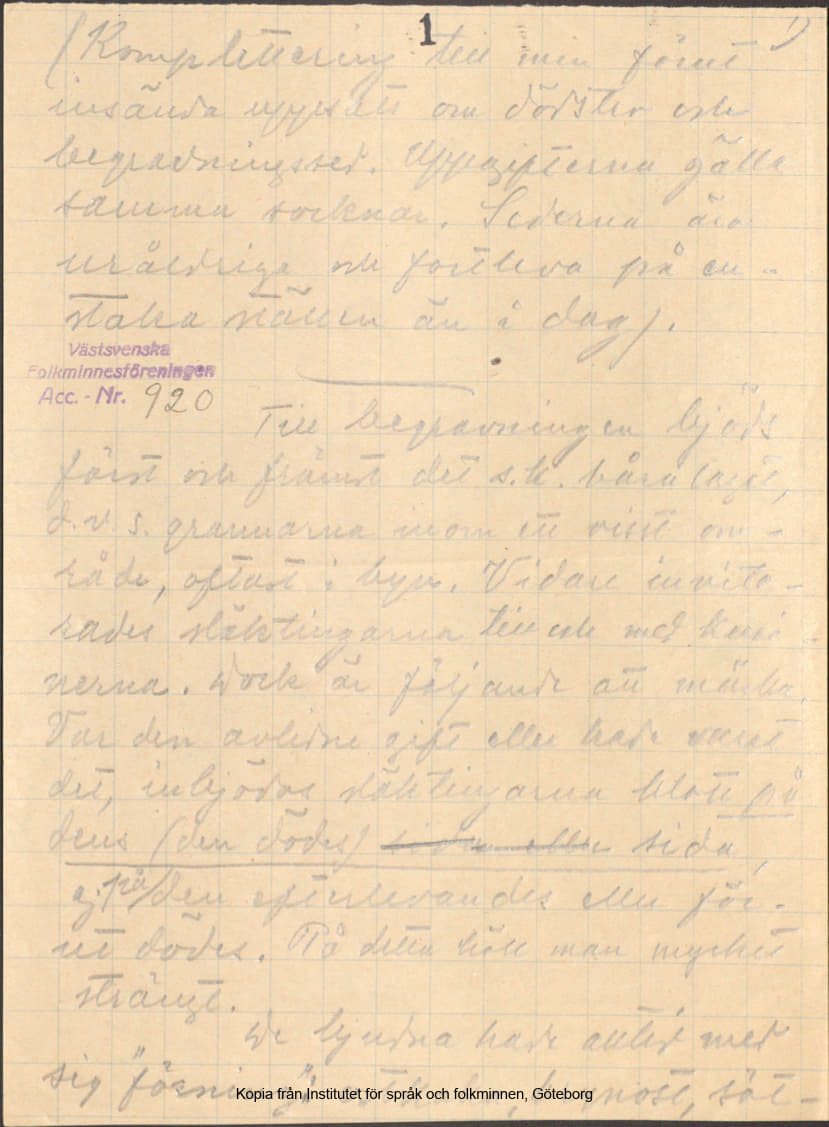 1
1)
(Komplettering till min förut
insända uppsats om dödstro och
begravningssed. Uppgifterna gälla
samma socknar. Sederna äro
uråldriga och fortleva på en-
staka ställen än i dag).
Västsvenska
Folkminnesföreningen
Acc. - Nr. 920
Till begravningen bjöds
först och främst det s.k. båralaget,
d.v.s. grannarna inom ett visst om-
råde, oftast i byn. Vidare invite-
rades släktingarna till och med kusi-
nerna. Dock är följande att märka.
Var den avlidne gift eller hade varit
det, inbjödos släktingarna blott på
dens (den dödes) sida,
ej på den efterlevandes eller för-
ut dödes. På detta höll man mycket
strängt.
De bjudna hade alltid med
sig "förning", ostkakor, söt-
Kopia från Institutet för språk och folkminnen, Göteborg